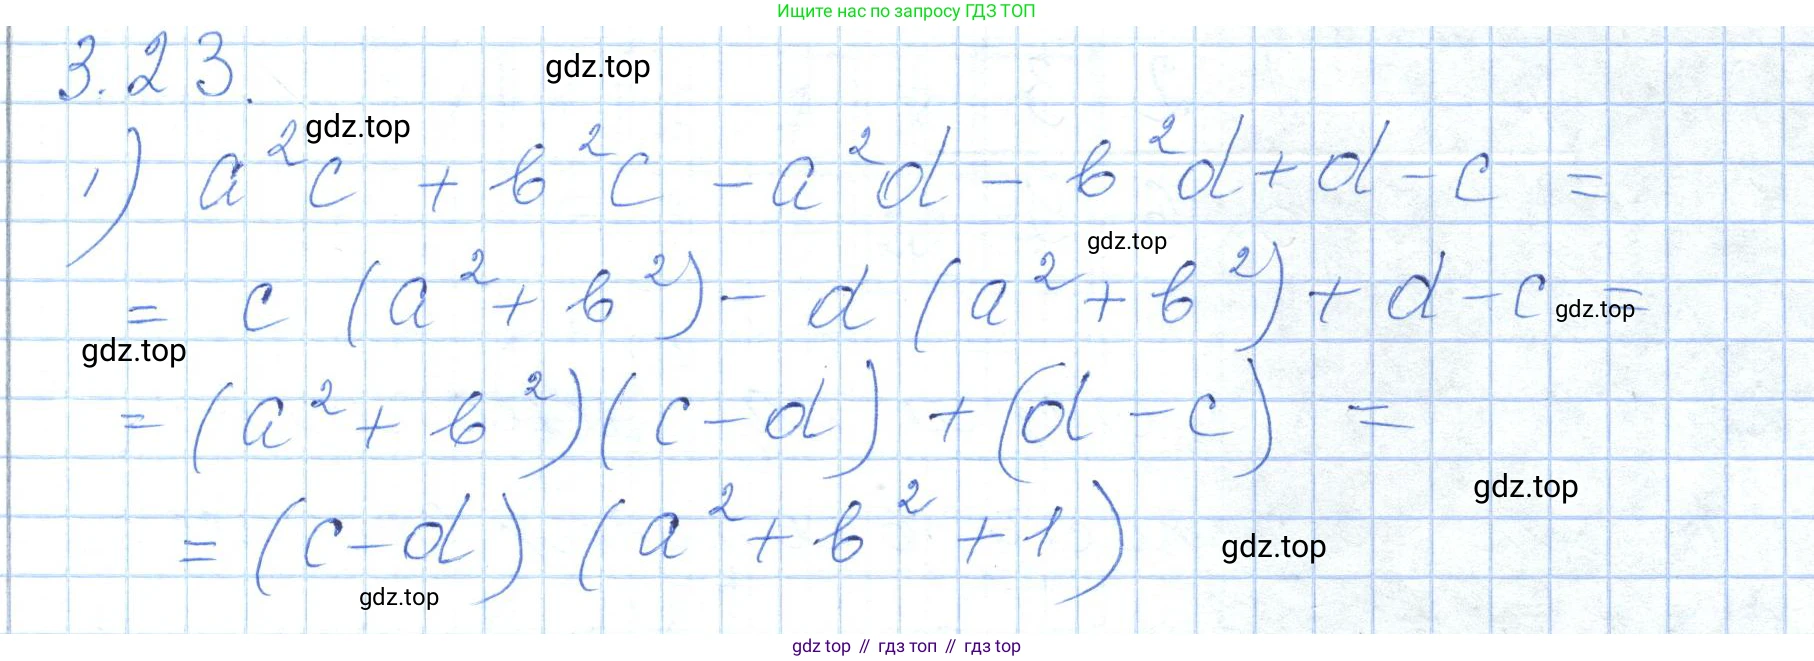 Ищите нас по запросу ГДЗ ТОП
3.23.
gdz.top
gdz.top
1) a²c + b²c - a²d - b²d + d - c =
gdz.top
= c (a² + b²) - d (a² + b²) + d - c =
gdz.top
gdz.top
= (a² + b²)(c - d) + (d - c) =
gdz.top
= (c - d) (a² + b² + 1)
gdz.top
gdz.top
gdz top // гдз топ // гдз top